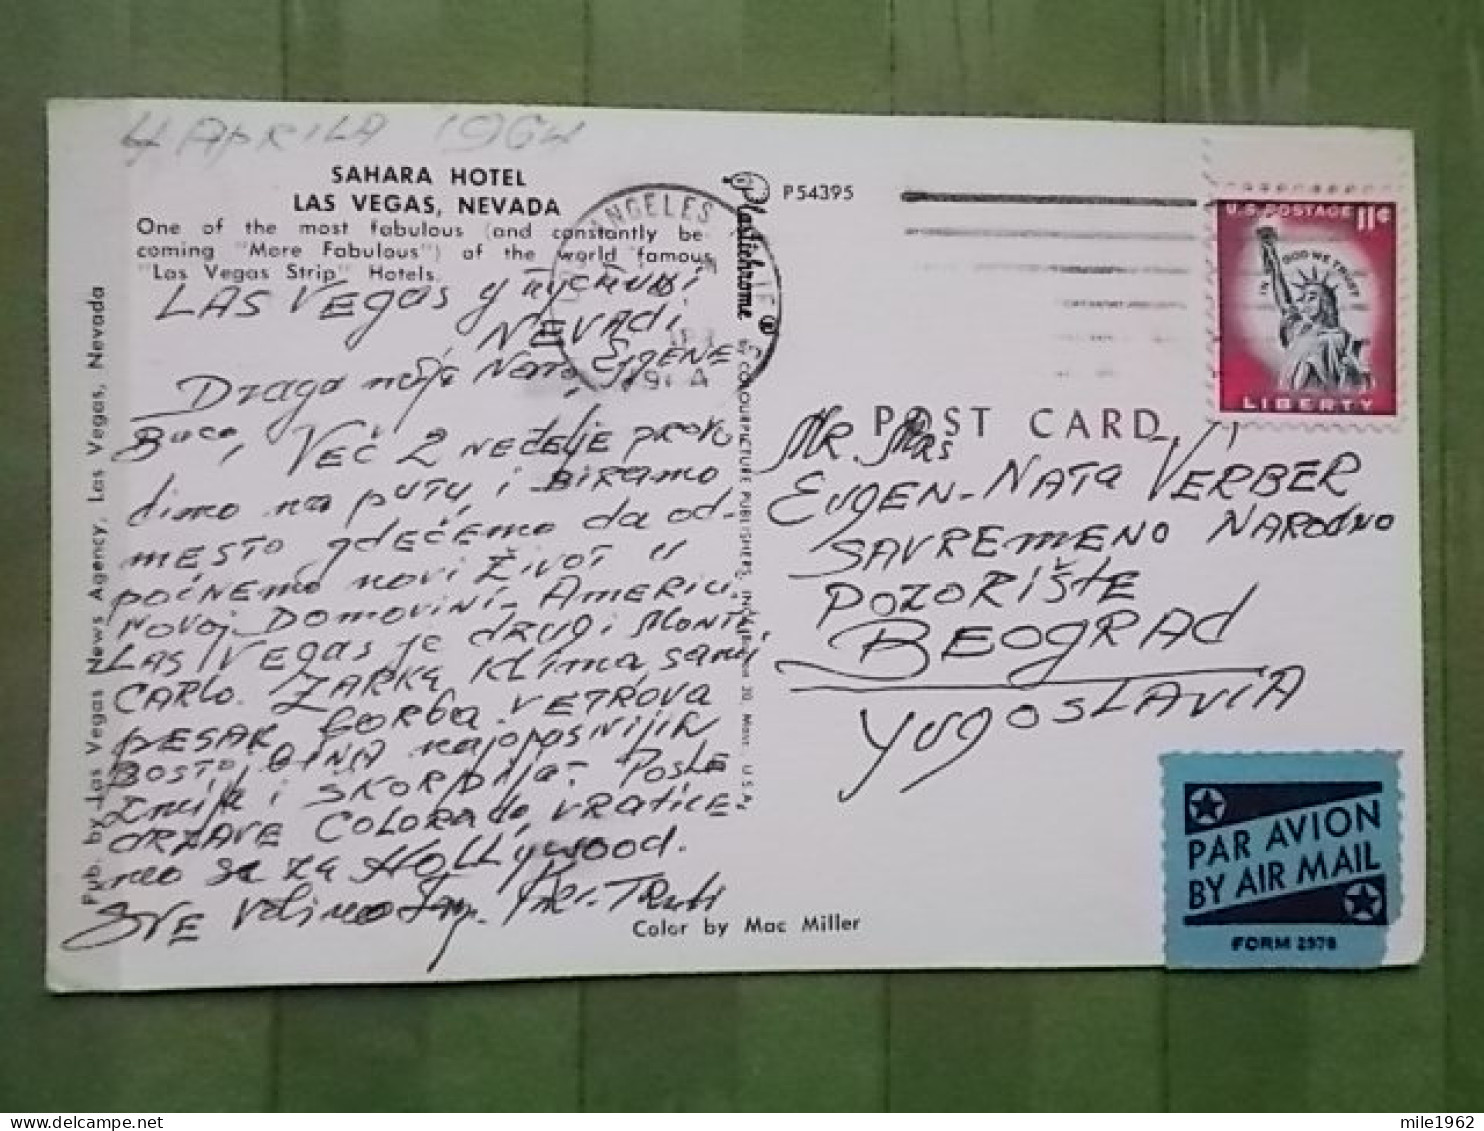 4 APRILA 1964
SAHARA HOTEL
LAS VEGAS, NEVADA
One of the most fabulous (and constantly be-
coming "More Fabulous") of the world famous
"Las Vegas Strip" Hotels.
LAS VEGAS y
NEVADI
Draga moja Nato, EUGENE
Buco, VEĆ 2 NEDELJE provo
dimo na putu, i BIRAMO
MESTO gdećemo da od-
počnemo novi ŽIVOT u
NOVOJ DOMOVINI- AMERICI.
LAS VEGAS je drugi MONTE
CARLO. ŽARKA KLIMA, sami
PESAK BORBA VETROVA
najopasnijih
zmija i ŠKORPIJA. POSLE
DRŽAVE COLORADO, VRATIĆE
mo se za HOLLYWOOD.
SVE Voli
Pub. by Las Vegas News Agency, Las Vegas, Nevada
Plastichrome ®
by COLOURPICTURE PUBLISHERS, INC., Boston 30, Mass. U.S.A.
P54395
ANGELES
CALIF
1964
U.S. POSTAGE 11¢
IN GOD WE TRUST
LIBERTY
POST CARD
MR. Mrs
EUGEN-NATA VERBER
SAVREMENO NARODNO
POZORIŠTE
BEOGRAD
YUGOSLAVIA
PAR AVION
BY AIR MAIL
FORM 2978
Color by Mac Miller
mile1962